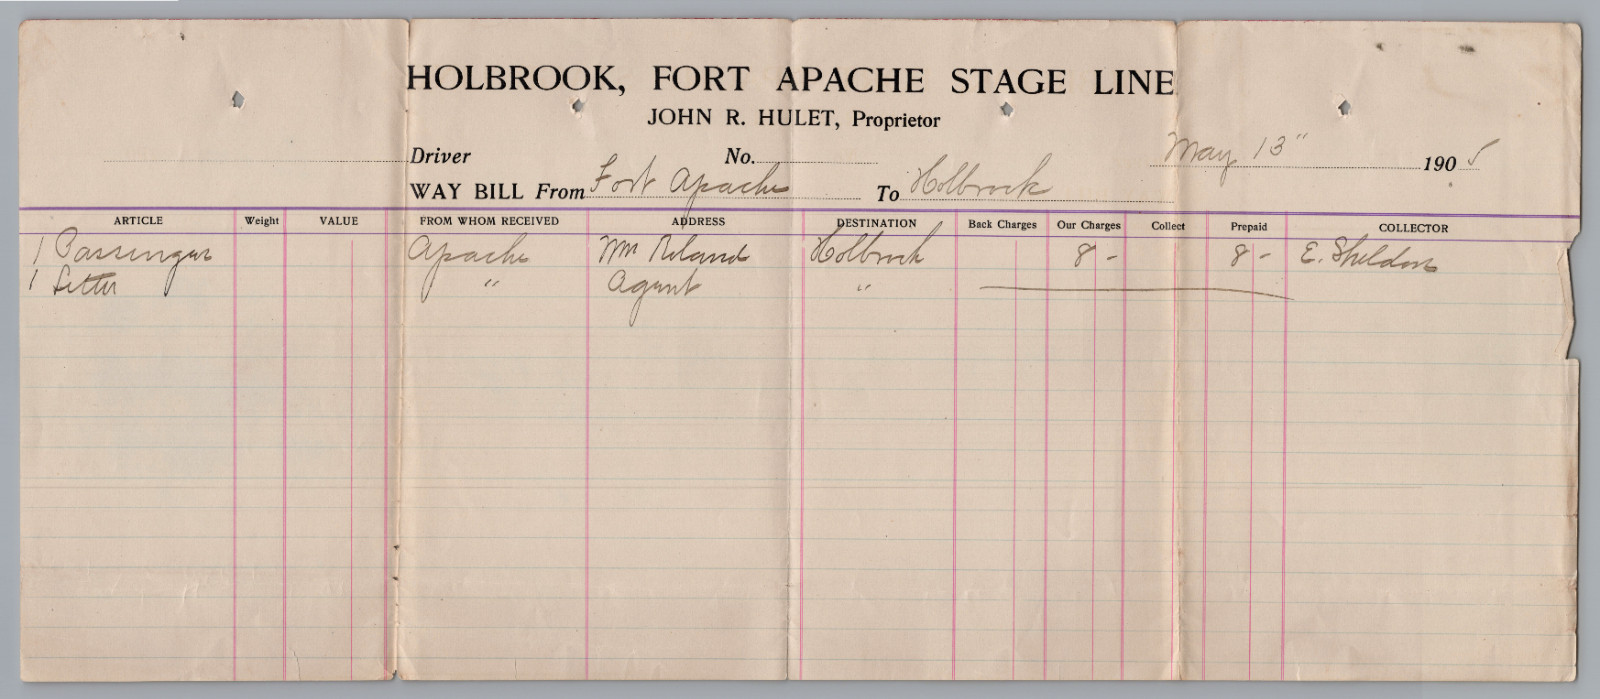 HOLBROOK, FORT APACHE STAGE LINE
JOHN R. HULET, Proprietor
Driver No. May 13" 1905
WAY BILL From Fort Apache To Holbrook
ARTICLE Weight VALUE FROM WHOM RECEIVED ADDRESS DESTINATION Back Charges Our Charges Collect Prepaid COLLECTOR
1 Passenger Apache Wm Roland Holbrook 8 - 8 - E. Sheldon
1 Letter " Agent "